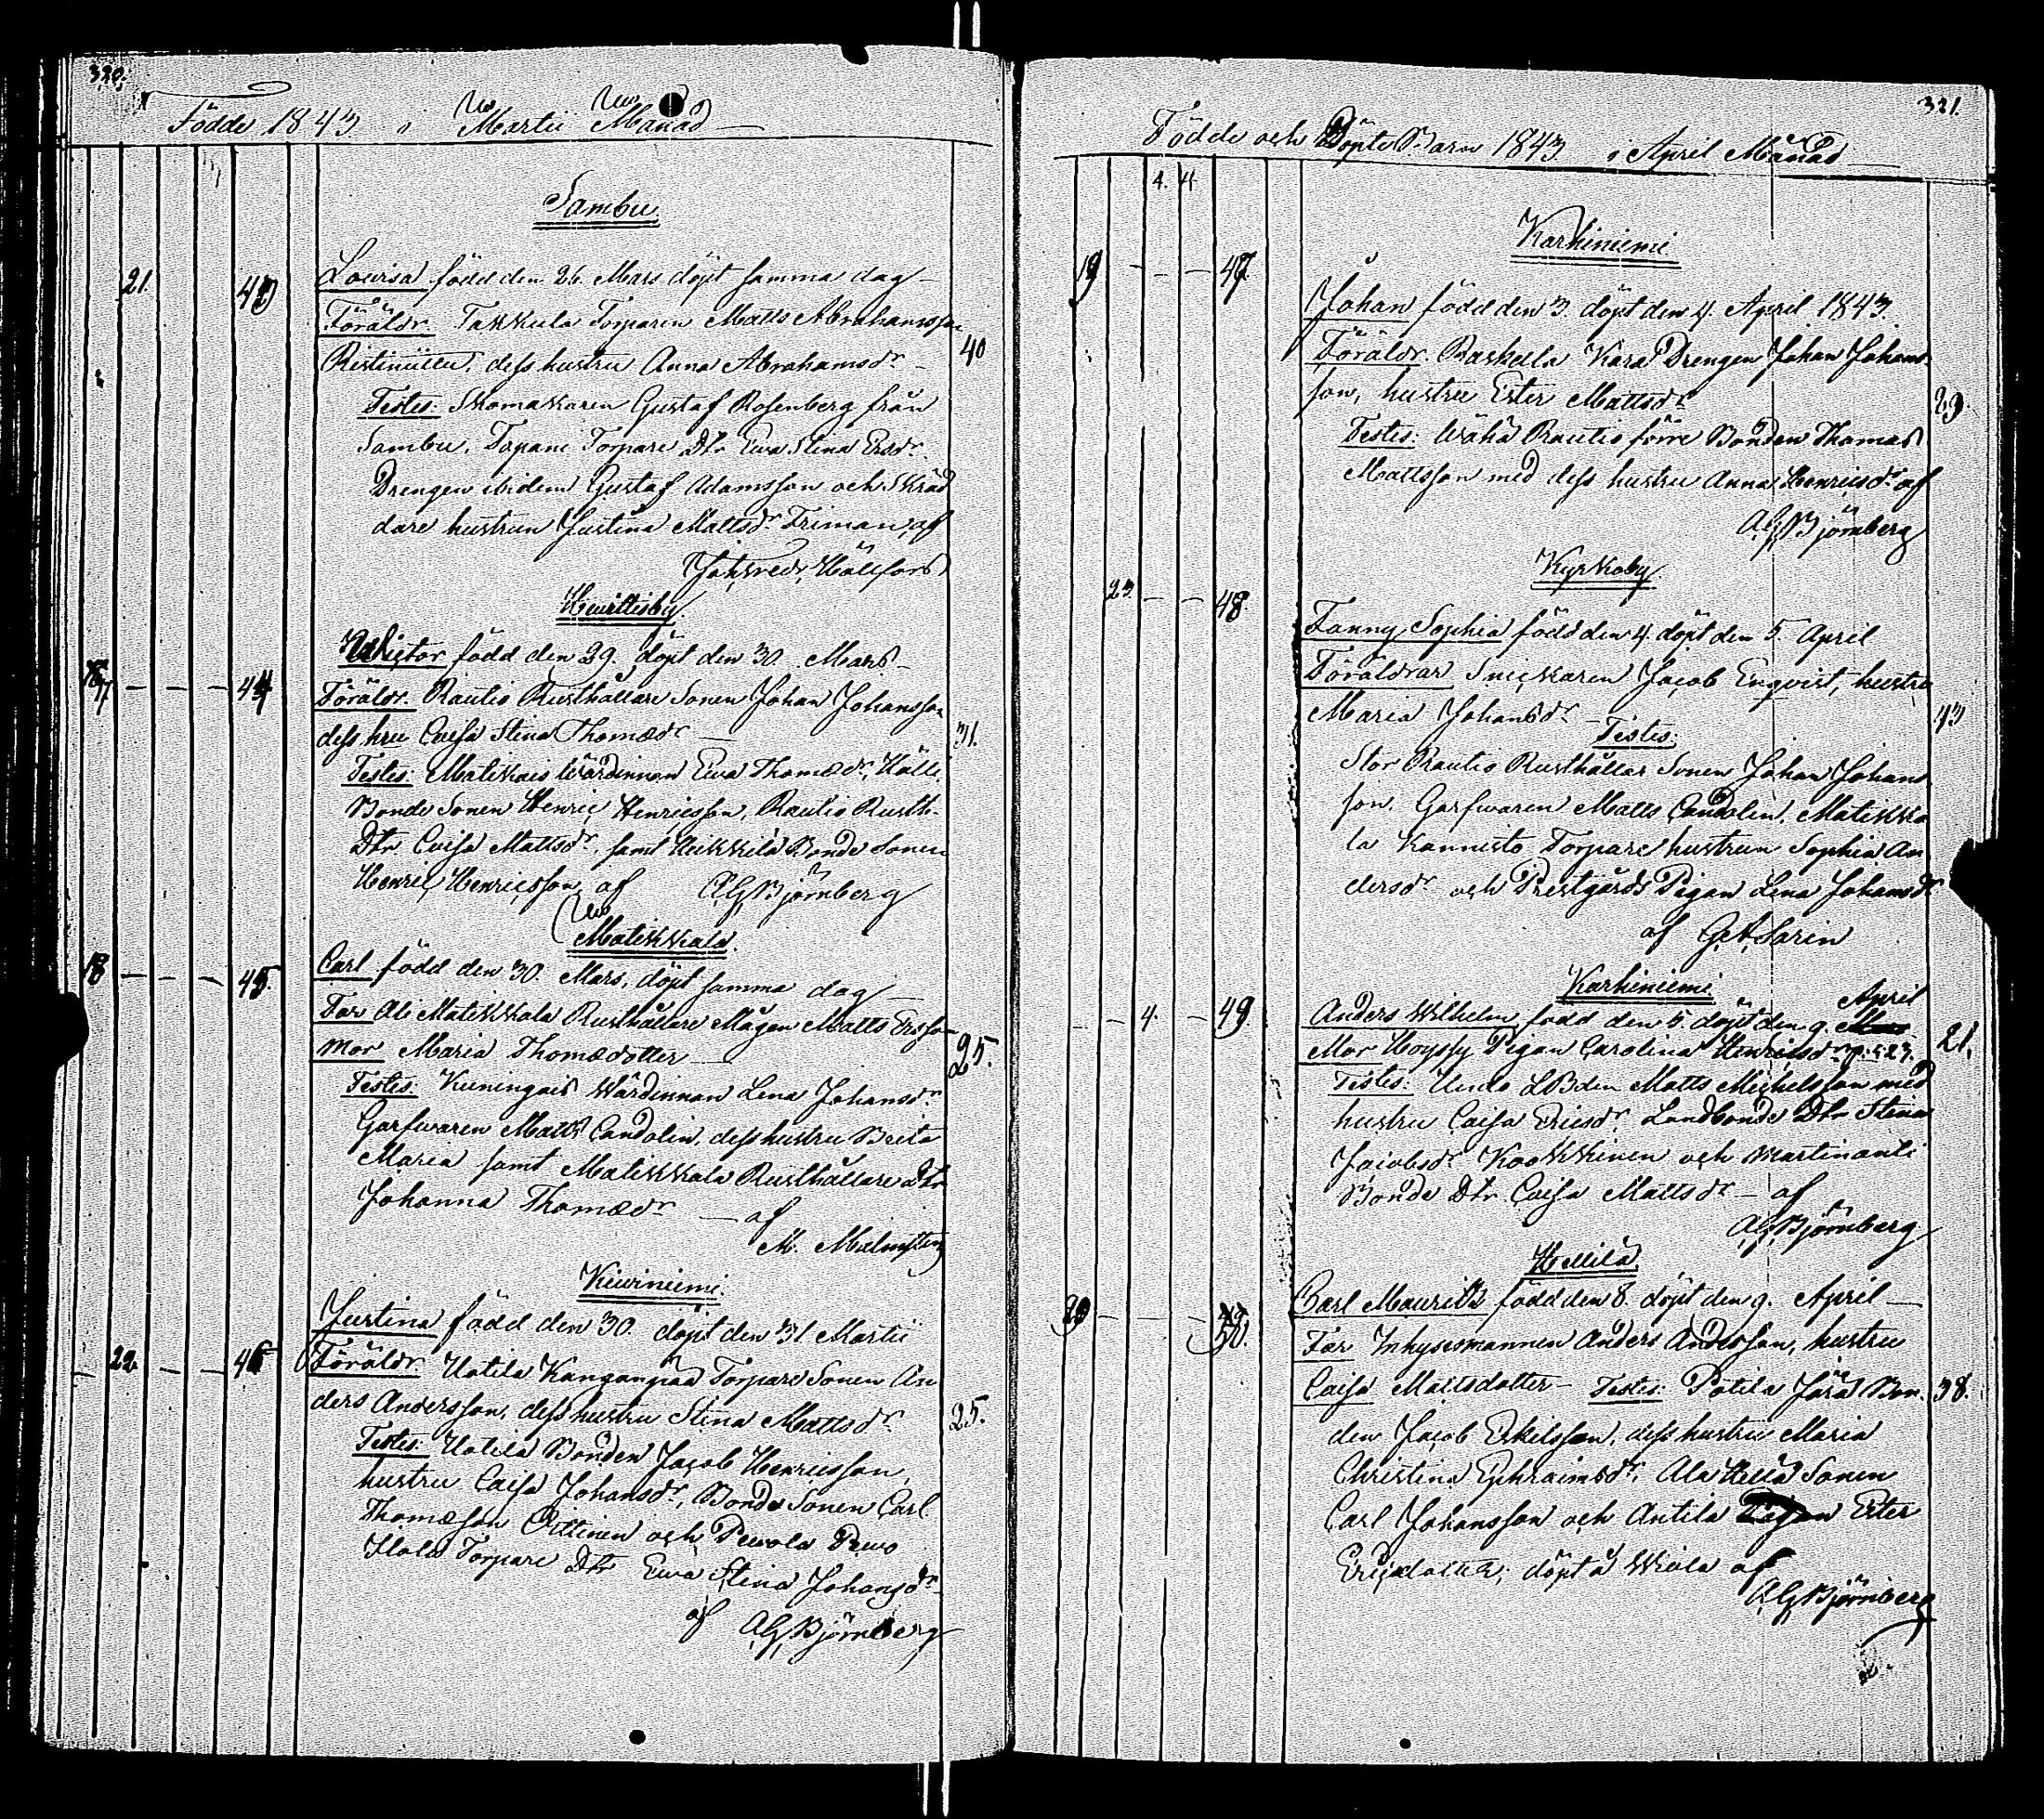 320.
Födde 1843 i Martii Månad
Sambu.
21. 43 Lovisa född den 26. Mars döpt samma dag
Föräldr. Takkula Torparen Matts Abrahamsson
40
dess hustru Anna Abrahamsdr
Testes: Skomakaren Gustaf Rosenberg från
Sambu, Tapani Torpare Dtr Ewa Stina Ersdr.
Drengen ibidem Gustaf Adamsson och Skräd
dare hustrun Justina Mattsdr. Friman, af
Joh. Fredr. Hällfors
Huittisby
Wictor född den 29. döpt den 30. Mars
17 44 Föräldr. Rautio Rusthållare Sonen Johan Johansson
dess hru Caisa Stina Thomædr 31.
Testes: Matikkais Wärdinnan Ewa Thomædr, Hälli
Bonde Sonen Henric Henricsson, Rautio Rusth.
Dtr. Caisa Mattsdr. samt Heikkilä Bonde Sonen
Henric Henricsson, af AGBjörnberg
Matikkala.
18 45. Carl född den 30. Mars, döpt samma dag
Far Ali Matikkala Rusthållare Mågen Matts Ersson
Mor Maria Thomædotter 25.
Testes: Kuningais Wärdinnan Lena Johansdr.
Garfwaren Matts Candolin, dess hustru Brita
Maria samt Matikkala Rusthållare Dtr
Johanna Thomædr af
M. Malmsten
Kiwiniemi.
Justina född den 30. döpt den 31 Martii
22. 46 Föräldr. Uotila Kanganpää Torpare Sonen An
ders Andersson, dess hustru Stina Mattsdr. 25.
Testes: Uotila Bonden Jacob Henricsson,
hustru Caisa Johansdr, Bonde Sonen Carl
Thomæson Orttinen och
Torpare Dtr Ewa Stina Johansdr
af AGBjörnberg
321.
Födde och Döpte Barn 1843. i April Månad
4. 4
Karhiniemi
19 47.
Johan född den 3. döpt den 4. April 1843.
Föräldr. Raskala Kara Drengen Johan Johans
son, hustru Ester Mattsdr 29.
Testes: Wähä Rautio förre Bonden Thomas
Mattsson med dess hustru Anna Henricsdr af
AGBjörnberg
Kyrkoby
23. 48.
Fanny Sophia född den 4. döpt den 5. April
Föräldrar Snickaren Jacob Enqvist, hustru
Maria Johansdr 43
Testes:
Stor Rautio Rusthållar Sonen Johan Johans
son. Garfwaren Matts Candolin. Matikka
la Kannisto Torpare hustrun Sophia An
dersdr. och Prestgårds Pigan Lena Johansdr
af G.A.Sarin
Karhiniemi
4. 49. Anders Wilhelm född den 5. döpt den 9. April
Mor Höyssy Pigan Carolina Henricsdr 21.
Testes: Undo LBden Matts Michelsson med
hustru Caisa Ericsdr. Landbonde Dtr Stina
Jacobsdr. Kookkinen och Martinanti
Bonde Dtr Caisa Mattsdr af
AGBjörnberg
Hellilä
50. Carl Mauritz född den 8. döpt den 9. April
Far Inhysesmannen Anders Andersson, hustru
Caisa Mattsdotter Testes: Potila Jära Bon. 38.
den Jacob Erkilsson, dess hustru Maria
Christina Ephraimsdr, Ala Hellilä Sonen
Carl Johansson och Antila Pigan Ester
Ericsdotter, döpt å af
AGBjörnberg